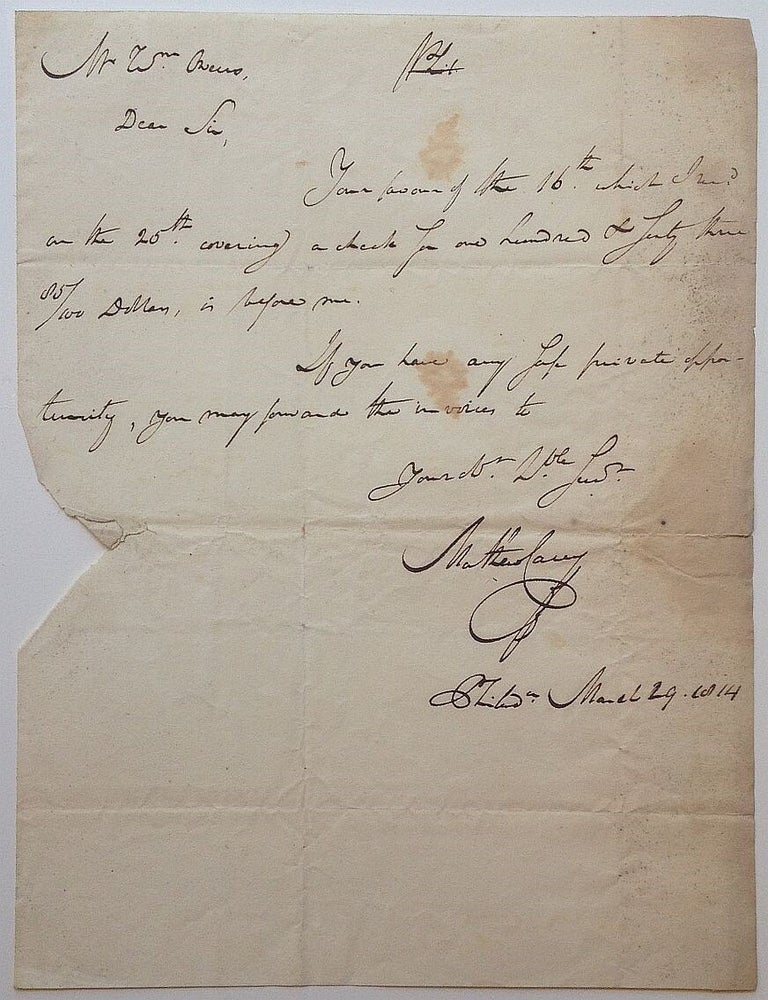 Mr Wm Owens,
Dear Sir,
Your favour of the 16th which I recd
on the 25th covering a check for one hundred & sixty three
85/100 Dollars, is before me.
If you have any safe private oppor-
tunity, you may forward the invoices to
Your obt Hble Servt
Mathew Carey
Philada March 29. 1814